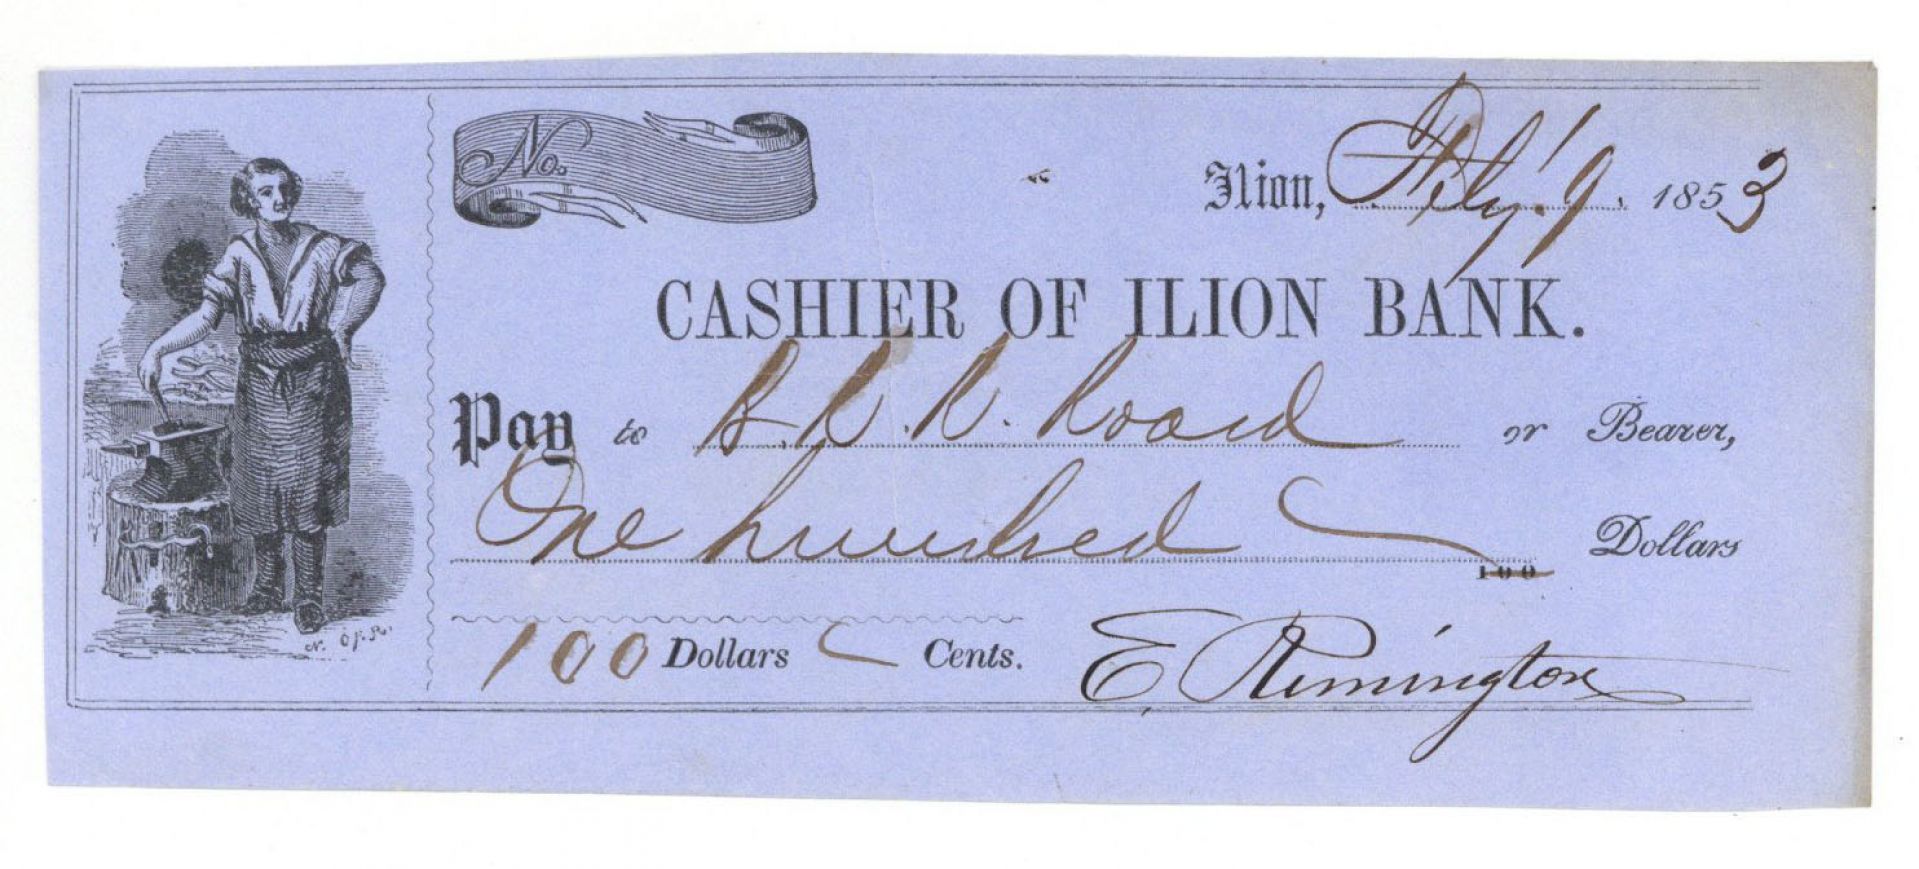 No.
Ilion, Feby. 9. 1853
CASHIER OF ILION BANK.
Pay to R. R. Road or Bearer,
One hundred Dollars
100
100 Dollars Cents.
E. Remington